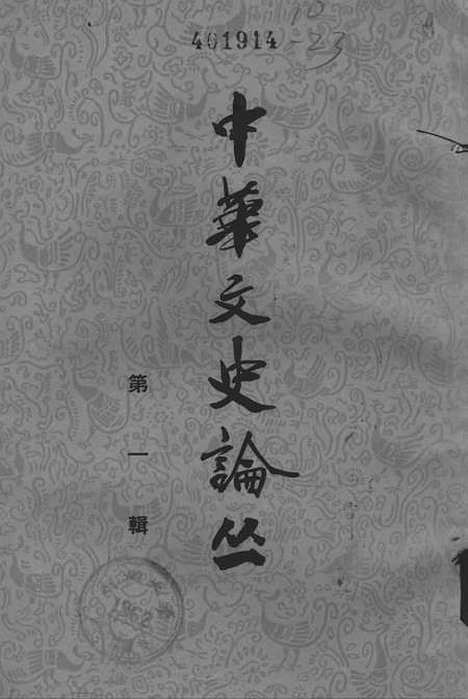 401914
10
-23
中華文史論丛
第一輯
1962